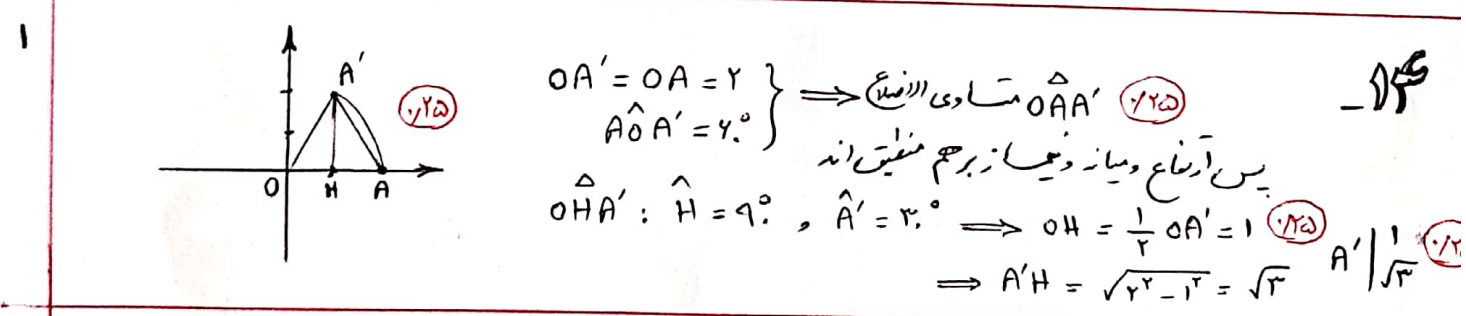 ۱
۱۴_
A'
۰/۲۵
O H A
OA' = OA = ۲
AÔA' = ۶۰°
⟹ OAA' متساوی الاضلاع ۰/۲۵
پس ارتفاع و میانه و نیمساز بر هم منطبق اند
OHA' : Ĥ = ۹۰° , Â' = ۳۰° ⟹ OH = ۱/۲ OA' = ۱ ۰/۲۵
⟹ A'H = √۲² - ۱² = √۳ A' | ۱ √۳